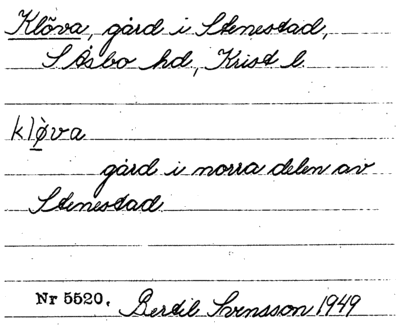 Klöva, gård i Stenestad,
S Åsbo hd, Krist l.
klø̀va
gård i norra delen av
Stenestad
Nr 5520. Bertil Svensson 1949